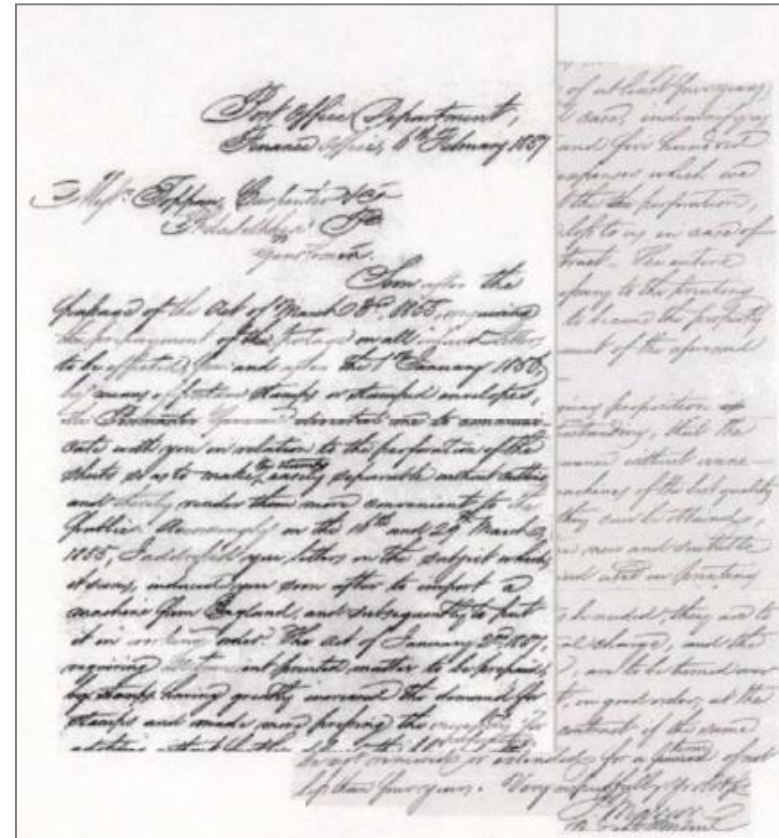 Post Office Department,
Finance Office, 6th February 1857
Messrs Toppan, Carpenter & Co
Philadelphia Pa
Gentlemen.
Soon after the
passage of the Act of March 3rd 1855, requiring
the prepayment of the postage on all inland letters
to be effected, from and after the 1st January 1856,
by means of postage stamps or stamped envelopes,
the Postmaster General directed me to communi-
cate with you in relation to the perforation of the
sheets so as to make the stamps easily separable without cutting
and thereby render them more convenient to the
public. Accordingly on the 16th and 29th March,
1855, I addressed you letters on the subject which
it seems, induced you soon after to import a
machine from England, and subsequently to put
it in working order. The act of January 2nd 1857,
requiring transient printed matter to be prepaid
by stamps having greatly increased the demand for
stamps and made more pressing the
of at least four years,
case, indemnifying
and five hundred
expenses which we
the perforation,
left to us in case of
tract. The entire
to the printing
to become the property
ment of the aforesaid
going proposition
understanding, that the
without
machines of the best quality
they can be obtained,
new and suitable
and used in printing
branded, they are to
charge, and the
, are to be turned over
in good order, at the
contract of the same
be not renewed or extended for a further period of not
less than four years. Very respectfully,